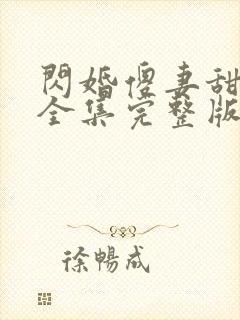 閃婚傻妻甜
全集完整版
徐暢成